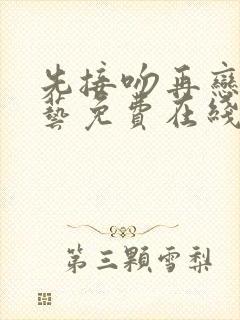 先接吻再戀
藝免費在綫
第三顆雪梨